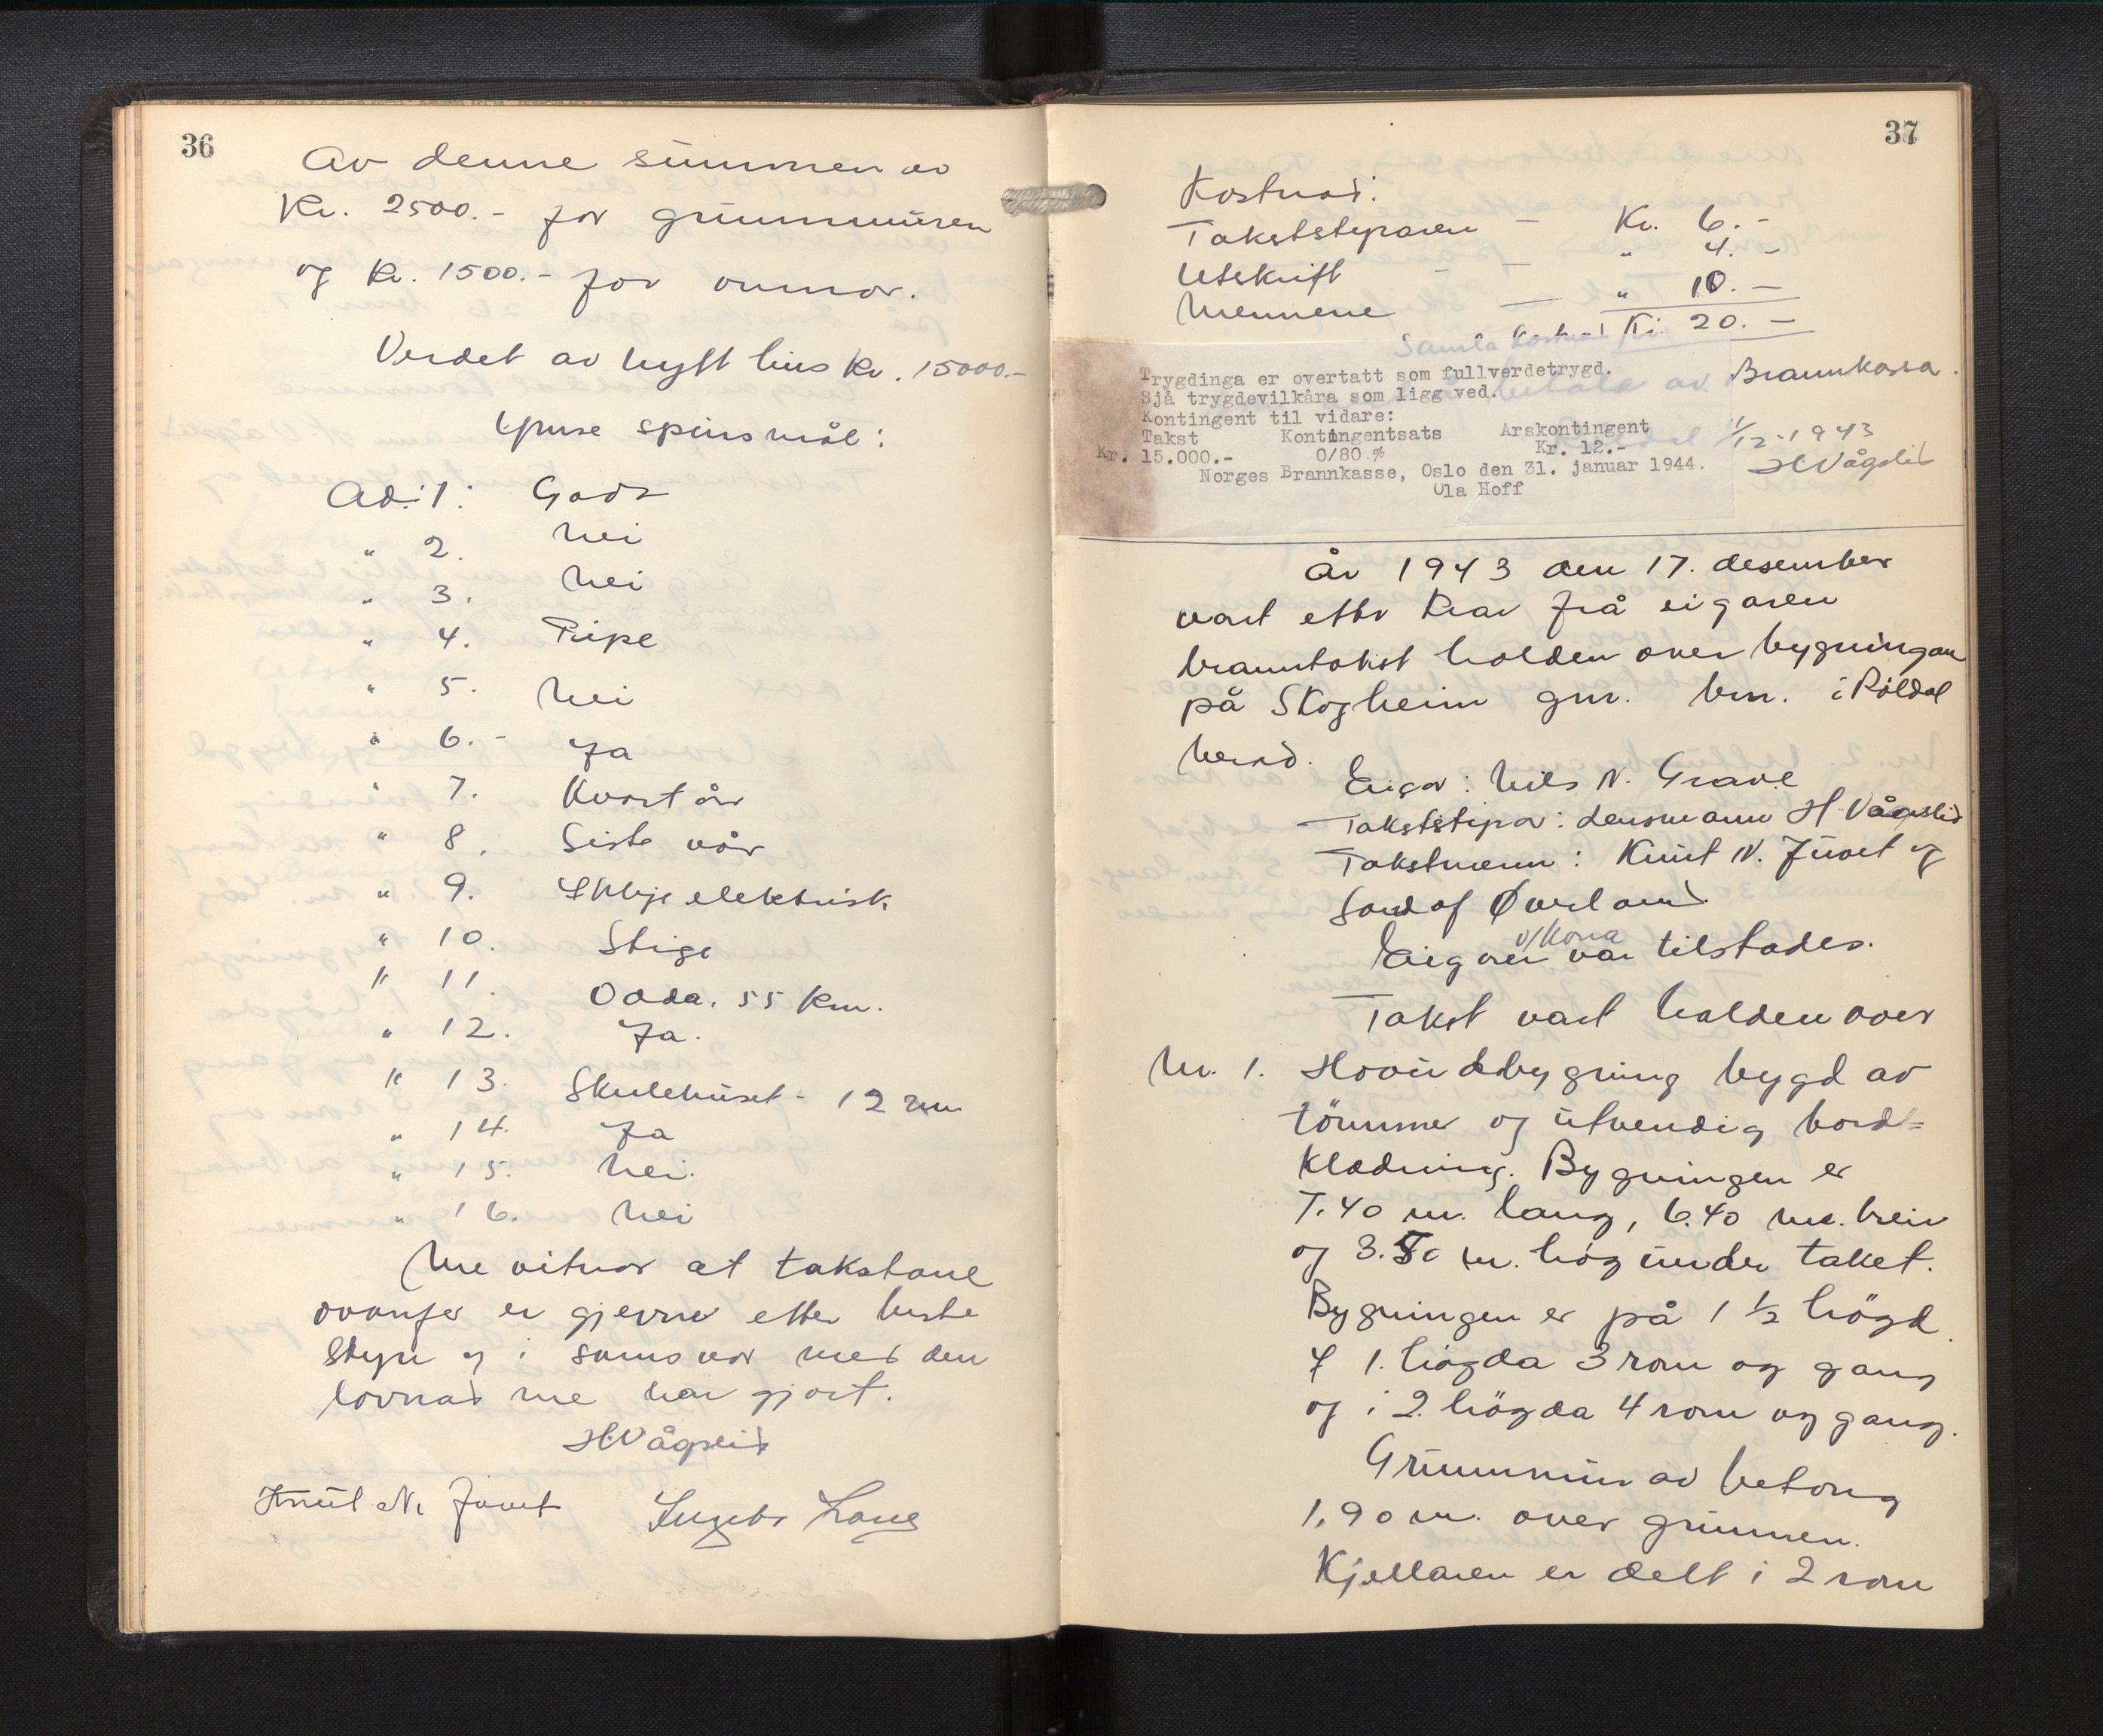 36
Av denne summen av
Kr. 2500.- for grunnmuren
og Kr. 1500.- for onnor.
Verdet av nytt hus kr. 15000.-
Ymse spursmål:
Ad: 1: God
" 2. Nei
" 3. Nei
" 4. Pipe
" 5. Nei
" 6. - Ja
" 7. Kvart år
" 8. Siste vår
" 9. elektrisk
" 10. Stige
" 11. Odda. 55 km.
" 12. Ja.
" 13. Skulehuset - 12 m
" 14. Ja
" 15. Nei.
" 16. Nei
Me vitnar at takstane
ovanfor er gjevne etter beste
skyn og i samsvar med den
lovnad me har gjort.
H Vågslid
Knut N. Juvet
37
Kostnad:
Takststyraren - Kr. 6.-
Utskrift - - " 4.-
Mennene - " 10.-
Samla Kostnad Kr. 20.-
betala av Brannkassa.
Trygdinga er overtatt som fullverdetrygd.
Sjå trygdevilkåra som ligg ved.
Kontingent til vidare:
Takst Kontingentsats Årskontingent
Kr. 15.000.- 0/80 % Kr. 12.-
Norges Brannkasse, Oslo den 31. januar 1944.
Ola Hoff
1/12-1943
H Vågslid
År 1943 den 17. desember
vart etter krav frå eigaren
branntakst halden over bygningane
på Skogheim gnr. bnr. i Röldal
herad.
Eigar: Nils N. Grave
Takststyrar: Lensmann H Vågslid
Takstmenn: Knut N. Juvet og
Gandof Överland.
Eigaren v/Kona var tilstades.
Takst vart halden over
Nr. 1. Hovudbygning bygd av
tömmer og utvendig bord-
klædning. Bygningen er
7.40 m. lang, 6.40 m. brei
og 3.50 m. høg under taket.
Bygningen er på 1 1/2 högd.
I 1. högda 3 rom og gang
og i 2. högda 4 rom og gang.
Grunnmur av betong
1,90 m. over grunnen.
Kjellaren er delt i 2 rom